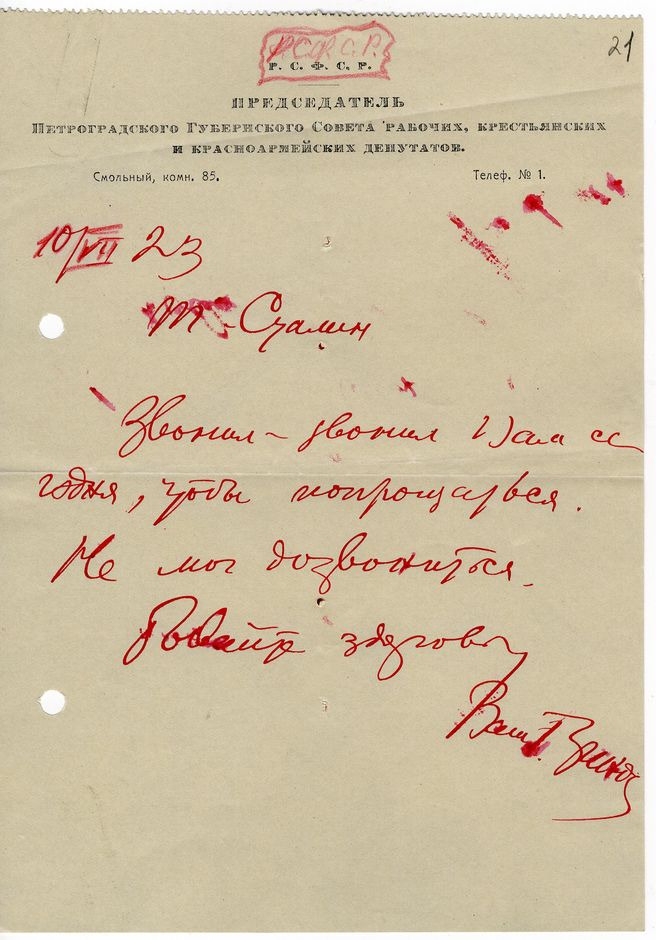 Р.С.Ф.С.Р.
21
Р. С. Ф. С. Р.
ПРЕДСЕДАТЕЛЬ
ПЕТРОГРАДСКОГО ГУБЕРНСКОГО СОВЕТА РАБОЧИХ, КРЕСТЬЯНСКИХ
И КРАСНОАРМЕЙСКИХ ДЕПУТАТОВ.
Смольный, комн. 85. Телеф. № 1.
10/VII 23
т. Сталин
Звонил – звонил Вам се
годня, чтобы попрощаться.
Не мог дозвониться.
Бывайте здоровы
Ваш Г. Зинов